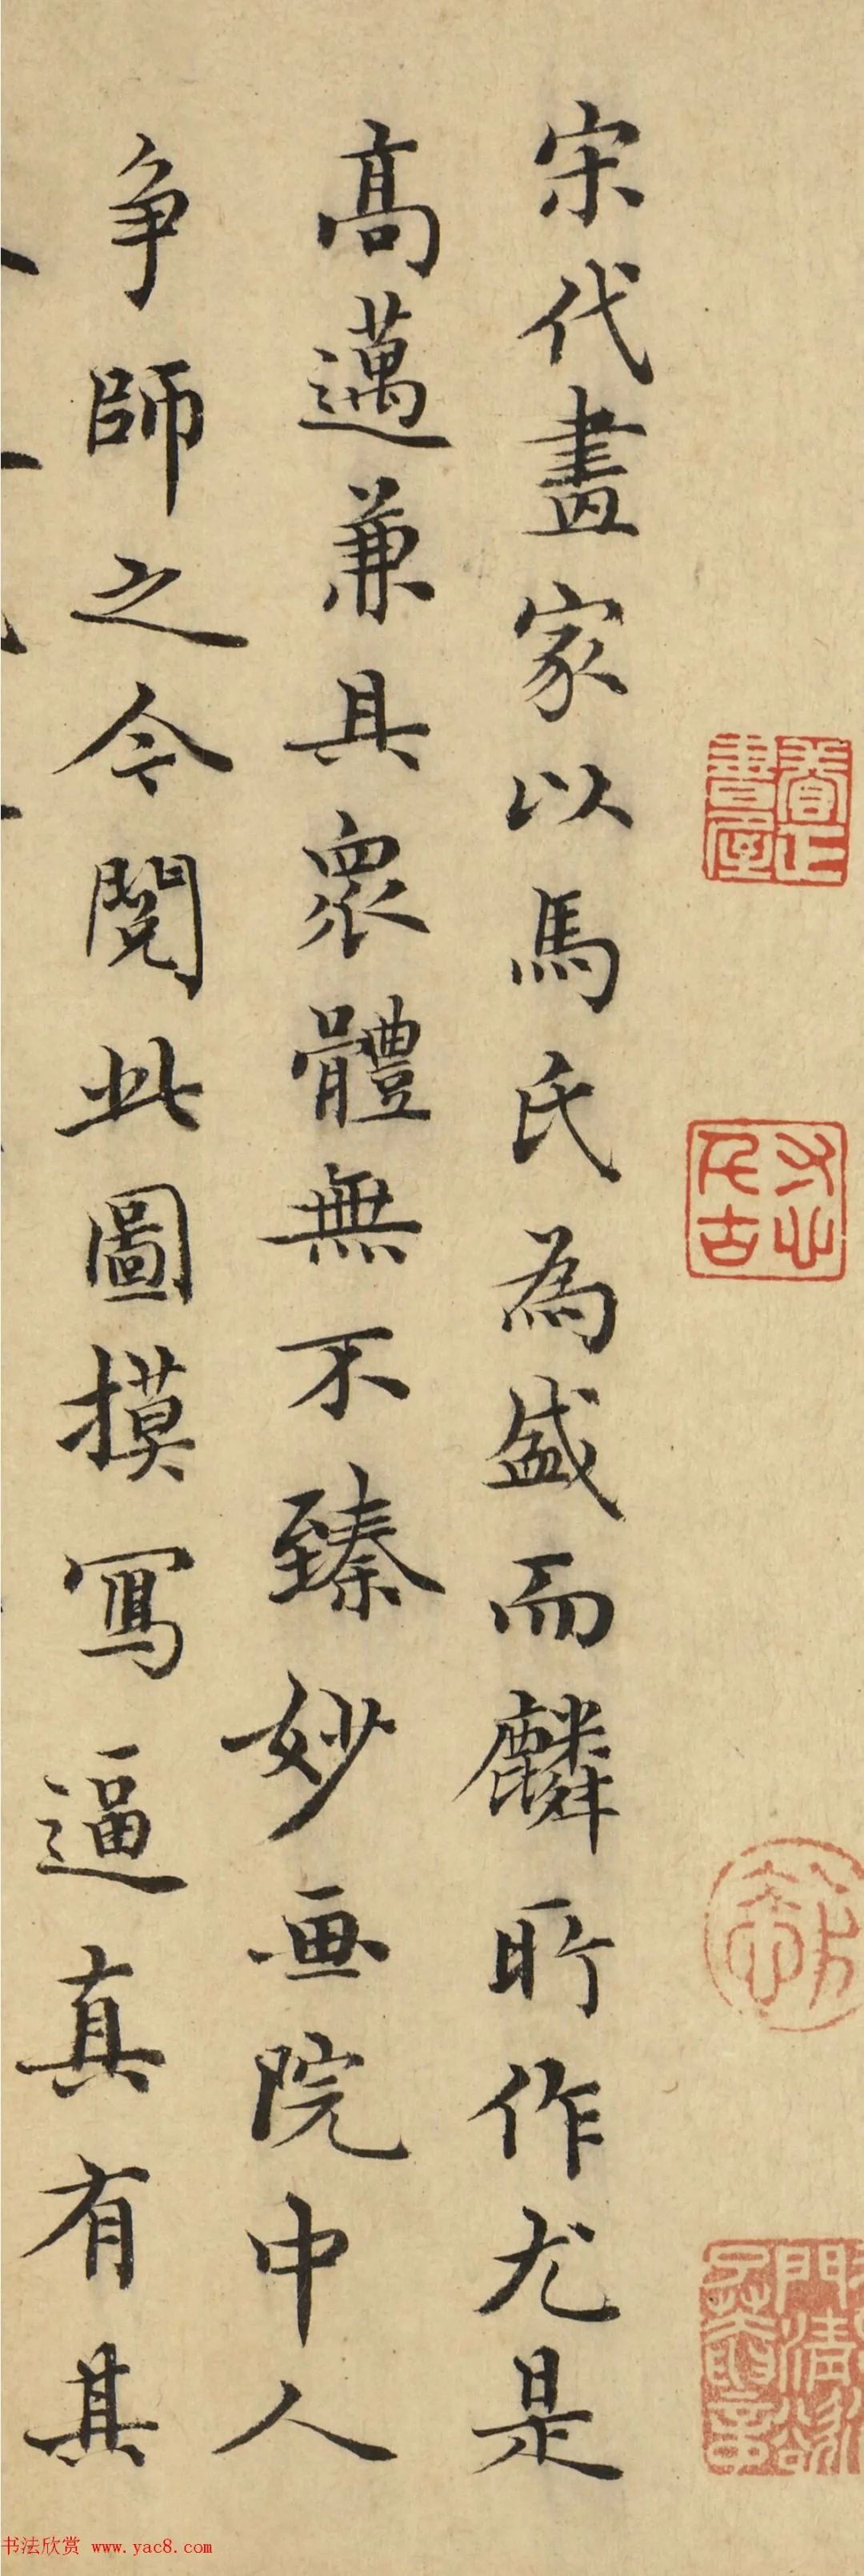 宋代畫家以馬氏為盛而麟所作尤是
高邁兼具眾體無不臻妙画院中人
争師之今閱此圖摸寫逼真有其
书法欣赏 www.yac8.com